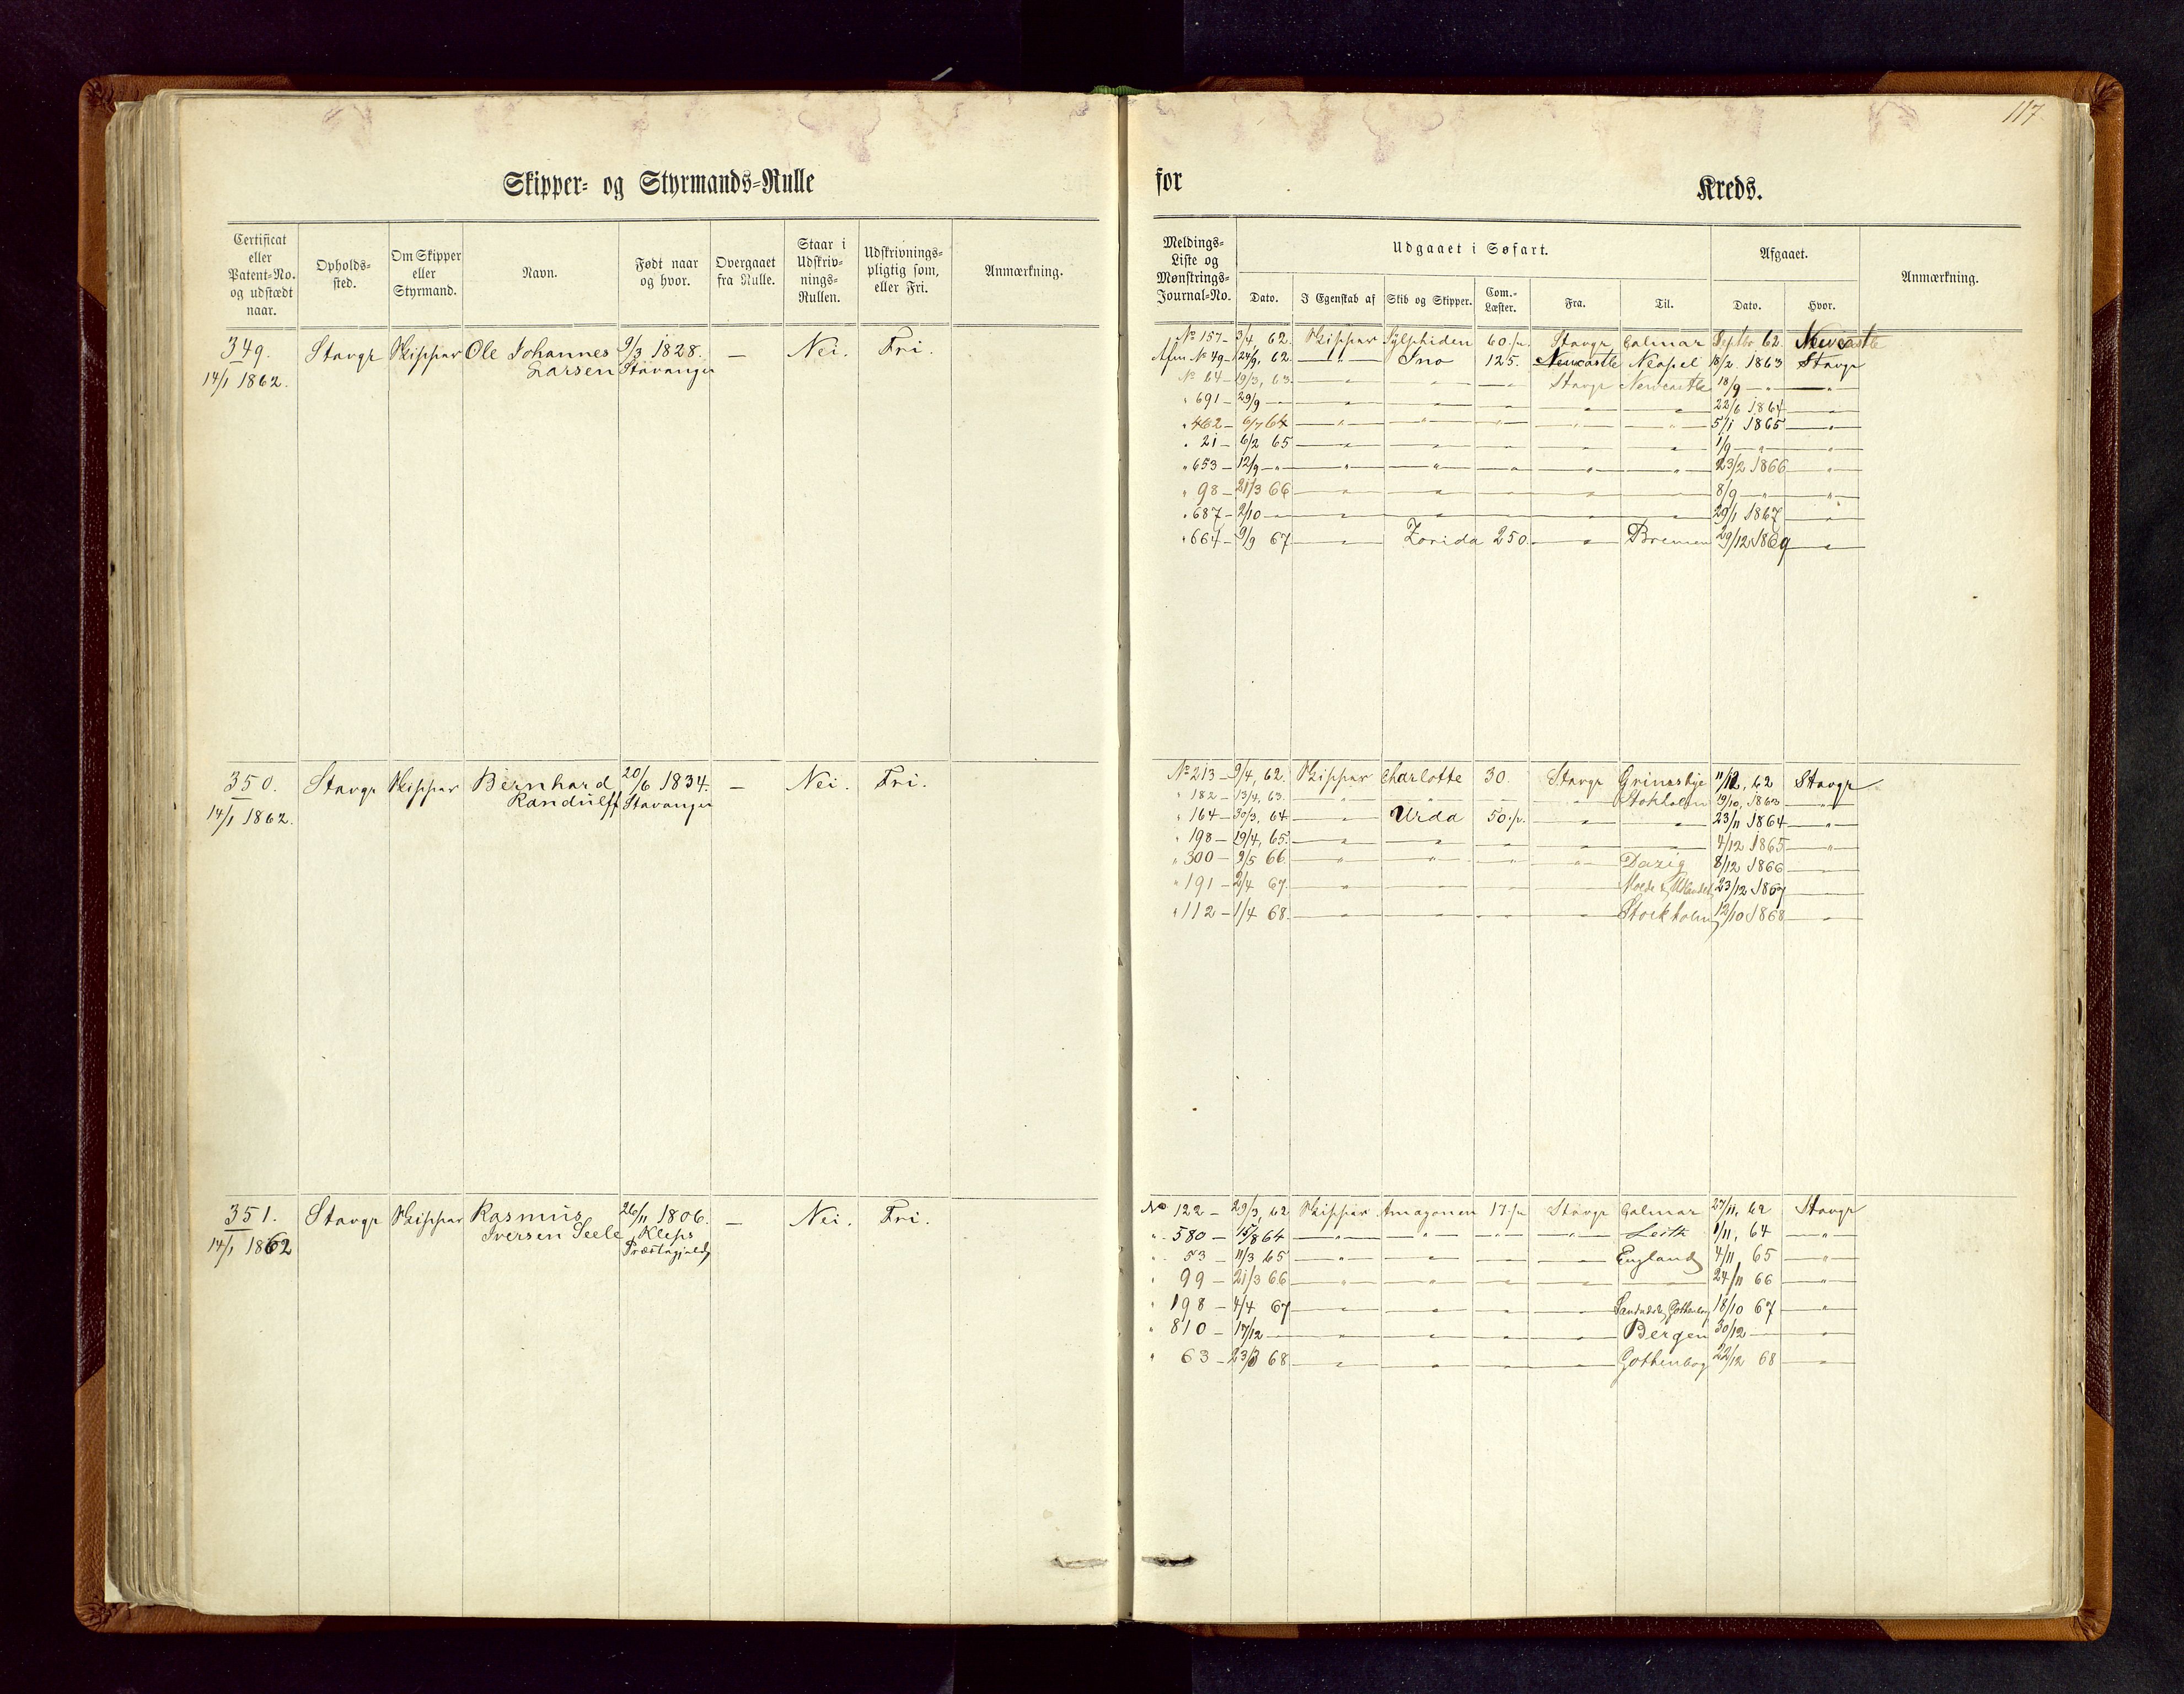 117
Skipper- og Styrmands-Rulle
for
Kreds.
Certificat eller Patent-No. og udstædt naar.
Opholds-sted.
Om Skipper eller Styrmand.
Navn.
Født naar og hvor.
Overgaaet fra Rulle.
Staar i Udskriv-nings-Rullen.
Udskrivnings-pligtig som, eller Fri.
Anmærkning.
Meldings-Liste og Mønstrings-Journal-No.
Udgaaet i Søfart.
Dato.
I Egenskab af
Skib og Skipper.
Com.-Læster.
Fra.
Til.
Afgaaet.
Dato.
Hvor.
Anmærkning.
349. Stavgr Skipper Ole Johannes 9/3 1828. — Nei. Fri.
14/1 1862. Larsen Stavanger
No 157 - 3/4 62. Skipper Sylphiden 60. Stavgr Calmar Septbr 62. Newcastle
No 49 - 24/9, 62. — " — Ino 125. Newcastle Neapel 18/2. 1863 Stavgr
No 64 - 19/3, 63. — " — " — " — Stavgr Newcastle 18/9 — " — " —
" 691 - 29/9 — " — " — " — " — " — 22/6 1864 — " —
" 462 - 6/7 64 — " — " — " — " — " — 5/1 1865 — " —
" 21 - 6/2 65 — " — " — " — " — " — 1/9 — " — " —
" 653 - 12/9 - " — " — " — " — " — " — 23/2 1866 — " —
" 98 - 21/3 66 — " — " — " — " — " — 8/9 — " — " —
" 687 - 2/10 — " — " — " — " — " — 29/1 1867 — " —
" 664 - 9/9 67 — " — Zorida 250. — " — Bremen 29/12 1869 — " —
350. Stavgr Skipper Bernhard 20/6 1834. — Nei. Fri.
14/1 1862. Randulff Stavanger
No 213 - 9/4, 62. Skipper Charlotte 30. Stavgr Grimsbye 11/12, 62 Stavgr
" 182 - 13/4, 63. — " — " — " — Stokholm 19/10, 1863 — " —
" 164 - 30/3, 64 — " — Urda 50. — " — " — 23/11 1864 — " —
" 198 - 19/4, 65. — " — " — " — " — " — 4/12 1865 — " —
" 300 - 9/5 66. — " — " — " — " — Dazig 8/12 1866 —
" 191 - 2/4 67. — " — " — " — " — 23/12 1867 —
" 112 - 1/4 68. — " — " — " — " — Stockholm 12/10 1868 — " —
351. Stavgr Skipper Rasmus 26/11 1806. — Nei. Fri.
14/1 1862 Iversen Seele Kleps
Præstegjeld
No 122 - 29/3, 62 Skipper Amazonen 17. Stavgr Calmar 27/11, 62 Stavgr
" 580 - 15/8 64 — " — " — " — " — Leith 1/11, 64 — " —
" 53 - 11/3 65 — " — " — " — " — England 4/11 65 — " —
" 99 - 21/3 66 — " — " — " — " — 24/11 66 — " —
" 198 - 4/4 67 — " — " — " — " — Gothenbog 18/10 67 — " —
" 810 - 17/12 — " — " — " — " — Bergen 30/12 — " —
" 63 - 23/3 68 — " — " — " — " — Gothenbog 22/12 68 — " —